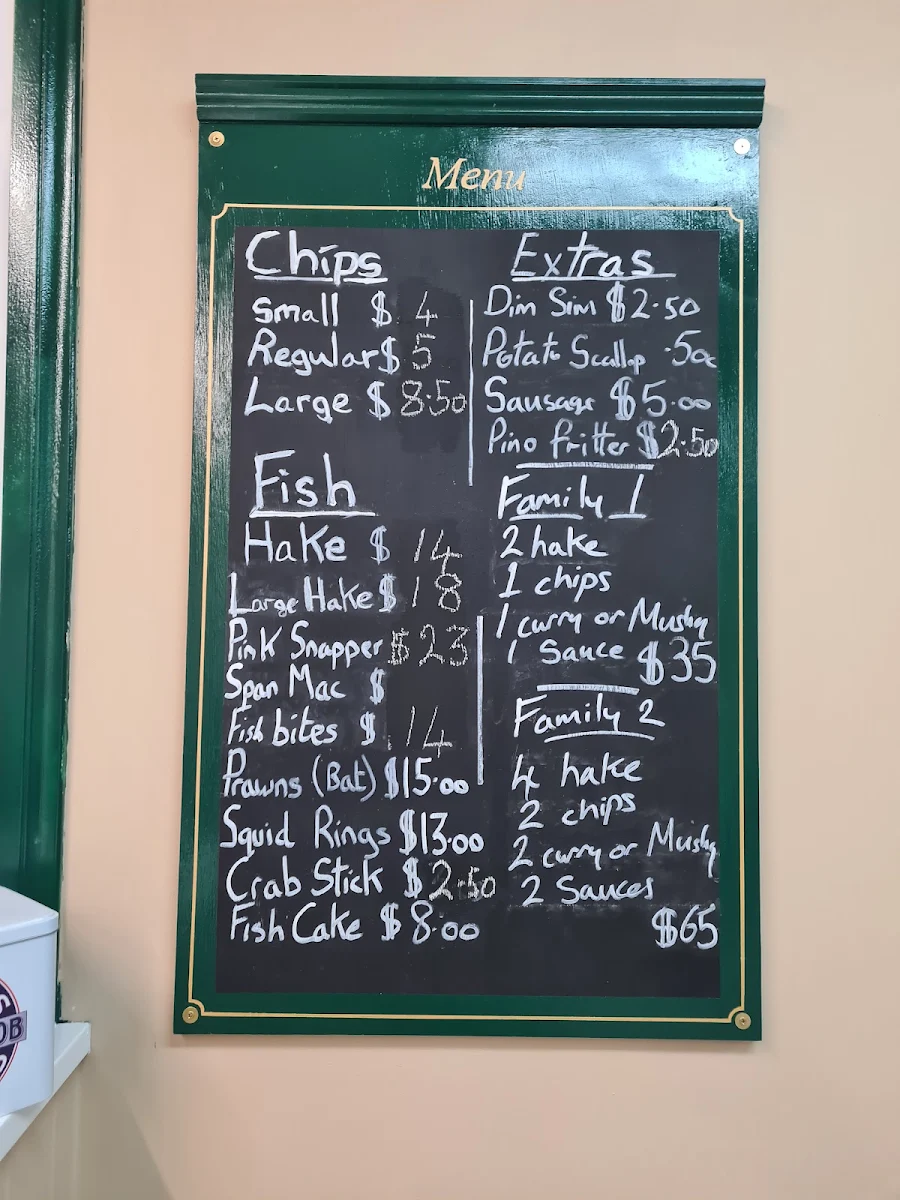 Menu
Chips
Small $ 4
Regular $ 5
Large $ 8.50
Fish
Hake $ 14
Large Hake $ 18
Pink Snapper $23
Span Mac $
Fish bites $ 14
Prawns (Bat) $15.00
Squid Rings $13.00
Crab Stick $ 2.50
Fish Cake $ 8.00
Extras
Dim Sim $2.50
Potato Scallop .50c
Sausage $5.00
Pino Fritter $2.50
Family 1
2 hake
1 chips
1 curry or Mushy
1 Sauce $35
Family 2
4 hake
2 chips
2 curry or Mushy
2 Sauces
$65